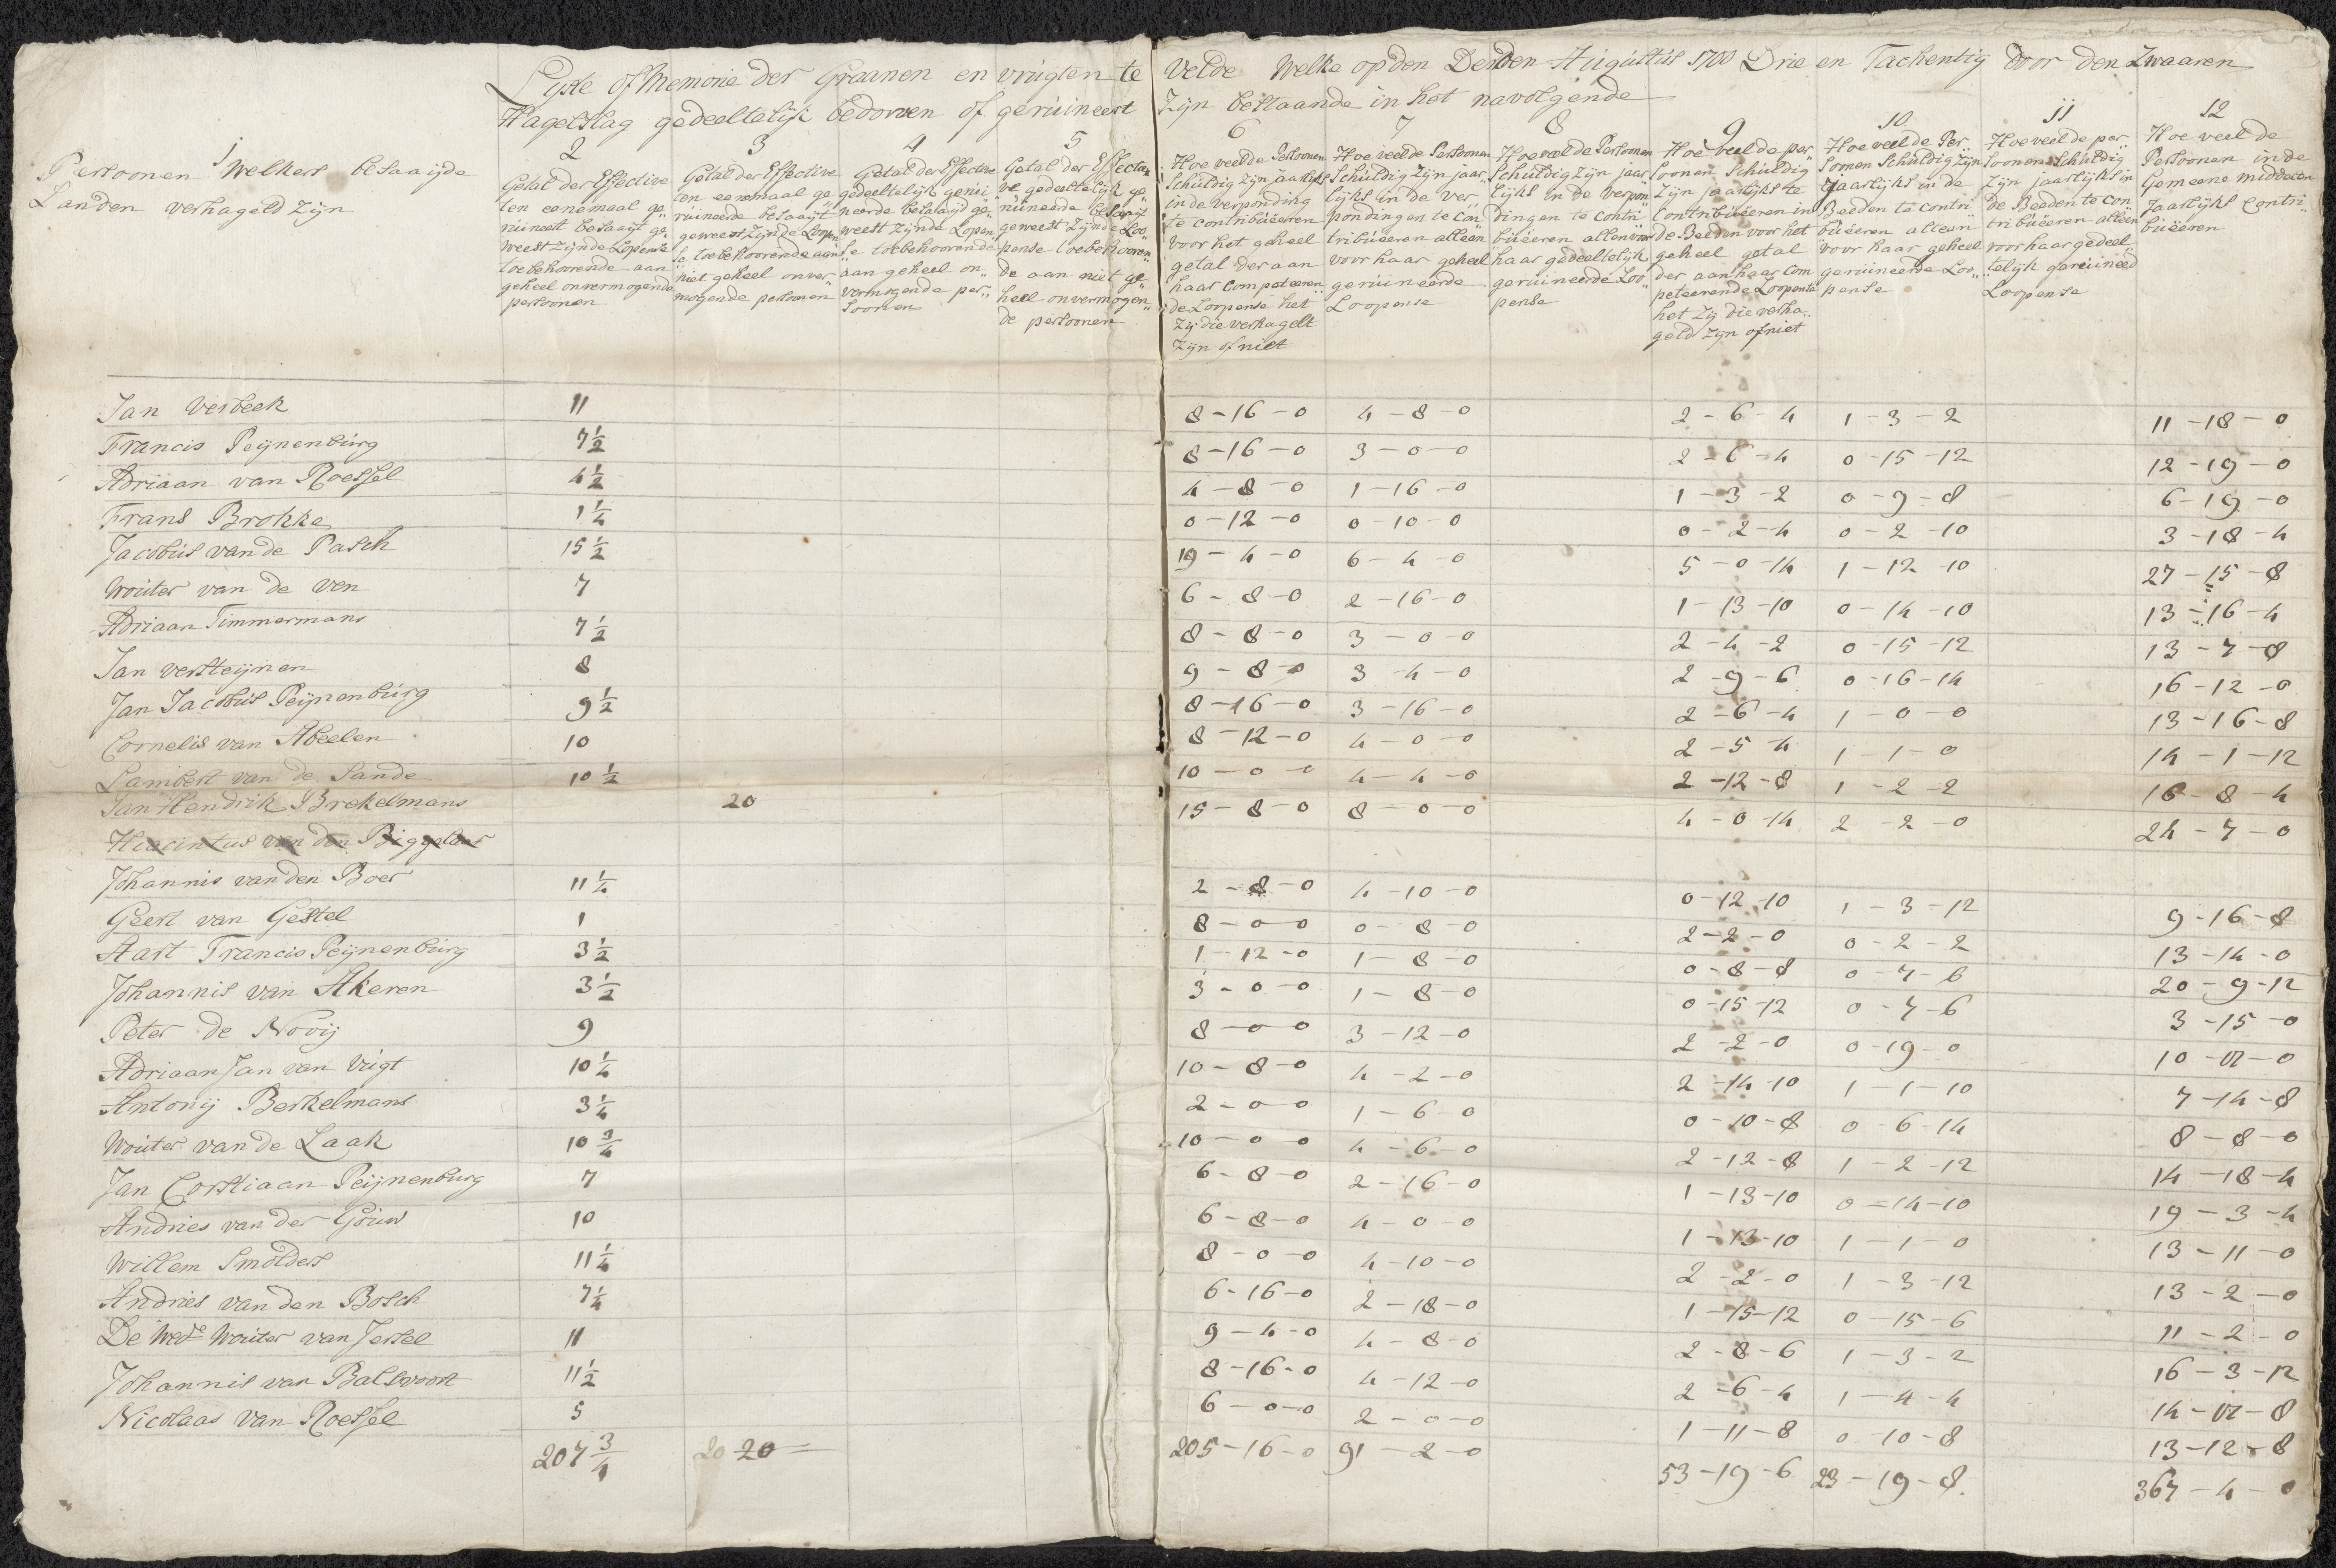 Lijste of Memorie der Graanen en vrugten te Velde Welke op den Derden Augustus 1700 Drie en Tachentig door den Zwaaren
Hagelslag gedeeltelijk bedorven of geruineert Zijn bestaande in het navolgende
1
Persoonen Welkers besaaijde
Landen verhageld zijn
2
Getal der Effective
ten eenemaal ge
ruineert besaaijt ge„
weest zijnde Lopense
toebehoorende aan
geheel onvermogende
persoonen
3
Getal der Effective
ten eenemaal ge„
ruineerde besaaijt
geweest zijnde Lopen„
se toebehoorende aan
niet geheel onver„
mogende persoonen
4
Getal der Effective
gedeeltelijk geruï„
neerde besaaijd ge„
weest zijnde Lopen„
se toebehoorende
aan geheel on„
vermogende per„
soonen
5
Getal der Effecti„
ve gedeeltelijk ge„
ruineerde besaaijt
geweest zijnde Loo„
pense toebehooren„
de aan niet ge„
heel onvermogen„
de persoonen
6
Hoe veel de Persoonen
Schuldig zijn jaarlijks
in de verponding
te contribuëeren
voor het geheel
getal der aan
haar Competeeren„
de Loopense het
Zij die verhagelt
Zijn of niet
7
Hoe veel de Persoonen
Schuldig zijn jaar„
lijks in de Ver„
pondingen te Con„
tribuëeren alleen
voor haar geheel
geruineerde
Loopense
8
Hoe veel de Persoonen
Schuldig zijn jaar
lijks in de verpon„
dingen te contri„
buëeren alleen voor
haar gedeeltelijk
geruineerde Loo„
pense
9
Hoe veel de per„
soonen Schuldig
Zijn jaarlijks te
Contribuëeren in
de Beeden voor het
geheel getal
der aan haar Com
peteerende Loopense
het Zij die verha„
geld zijn of niet
10
Hoe veel de Per„
soonen Schuldig zijn
Jaarlijks in de
Beeden te contri„
buëeren alleen
voor haar geheel
geruineerde Loo„
pense
11
Hoe veel de per„
soonen Schuldig
Zijn jaarlijks in
de Beeden te con„
tribuëeren alleen
voor haar gedeel„
telijk geruineerd
Loopense
12
Hoe veel de
Persoonen in de
Gemeene middelen
Jaarlijks Contri„
buëeren
Jan Verbeek 11 8-16-0 4-8-0 2-6-4 1-3-2 11-18-0
Francis Peijnenburg 7½ 8-16-0 3-0-0 2-6-4 0-15-12 12-19-0
Adriaan van Roessel 4½ 4-8-0 1-16-0 1-3-2 0-9-8 6-19-0
Frans Brokke 1¼ 0-12-0 0-10-0 0-2-4 0-2-10 3-18-4
Jacobus van de Pasch 15½ 19-4-0 6-4-0 5-0-14 1-12-10 27-15-8
Wouter van de Ven 7 6-8-0 2-16-0 1-13-10 0-14-10 13-16-4
Adriaan Timmermans 7½ 8-8-0 3-0-0 2-4-2 0-15-12 13-7-8
Jan versteijnen 8 9-8-0 3-4-0 2-9-6 0-16-14 16-12-0
Jan Jacobus Peijnenburg 9½ 8-16-0 3-16-0 2-6-4 1-0-0 13-16-8
Cornelis van Abeelen 10 8-12-0 4-0-0 2-5-4 1-1-0 14-1-12
Lambert van de Sande 10½ 10-0-0 4-4-0 2-12-8 1-2-2 16-8-4
Jan Hendrik Brekelmans 20 15-8-0 8-0-0 4-0-14 2-2-0 24-7-0
Hiacintus van den Biggelaar
Johannis van den Boer 11¼ 2-8-0 4-10-0 0-12-10 1-3-12 9-16-8
Geert van Gestel 1 8-0-0 0-8-0 2-2-0 0-2-2 13-14-0
Aart Francis Peijnenburg 3½ 1-12-0 1-8-0 0-8-8 0-7-6 20-9-12
Johannis van Akeren 3½ 3-0-0 1-8-0 0-15-12 0-7-6 3-15-0
Peter de Nooij 9 8-0-0 3-12-0 2-2-0 0-19-0 10-01-0
Adriaan Jan van Vugt 10¼ 10-8-0 4-2-0 2-14-10 1-1-10 7-14-8
Antonij Berkelmans 3¼ 2-0-0 1-6-0 0-10-8 0-6-14 8-8-0
Wouter van de Laak 10¾ 10-0-0 4-6-0 2-12-8 1-2-12 14-18-4
Jan Corstiaan Peijnenburg 7 6-8-0 2-16-0 1-13-10 0-14-10 19-3-4
Andries van der Gouw 10 6-8-0 4-0-0 1-13-10 1-1-0 13-11-0
Willem Smolders 11¼ 8-0-0 4-10-0 2-2-0 1-3-12 13-2-0
Andries van den Bosch 7¼ 6-16-0 2-18-0 1-15-12 0-15-6 11-2-0
De Wede Wouter van Jersel 11 9-4-0 4-8-0 2-8-6 1-3-2 16-3-12
Johannis van Balsvoort 11½ 8-16-0 4-12-0 2-6-4 1-4-4 14-01-8
Nicolaas van Roessel 5 6-0-0 2-0-0 1-11-8 0-10-8 13-12-8
207¾ 20 20 205-16-0 91-2-0 53-19-6 23-19-8 367-4-0